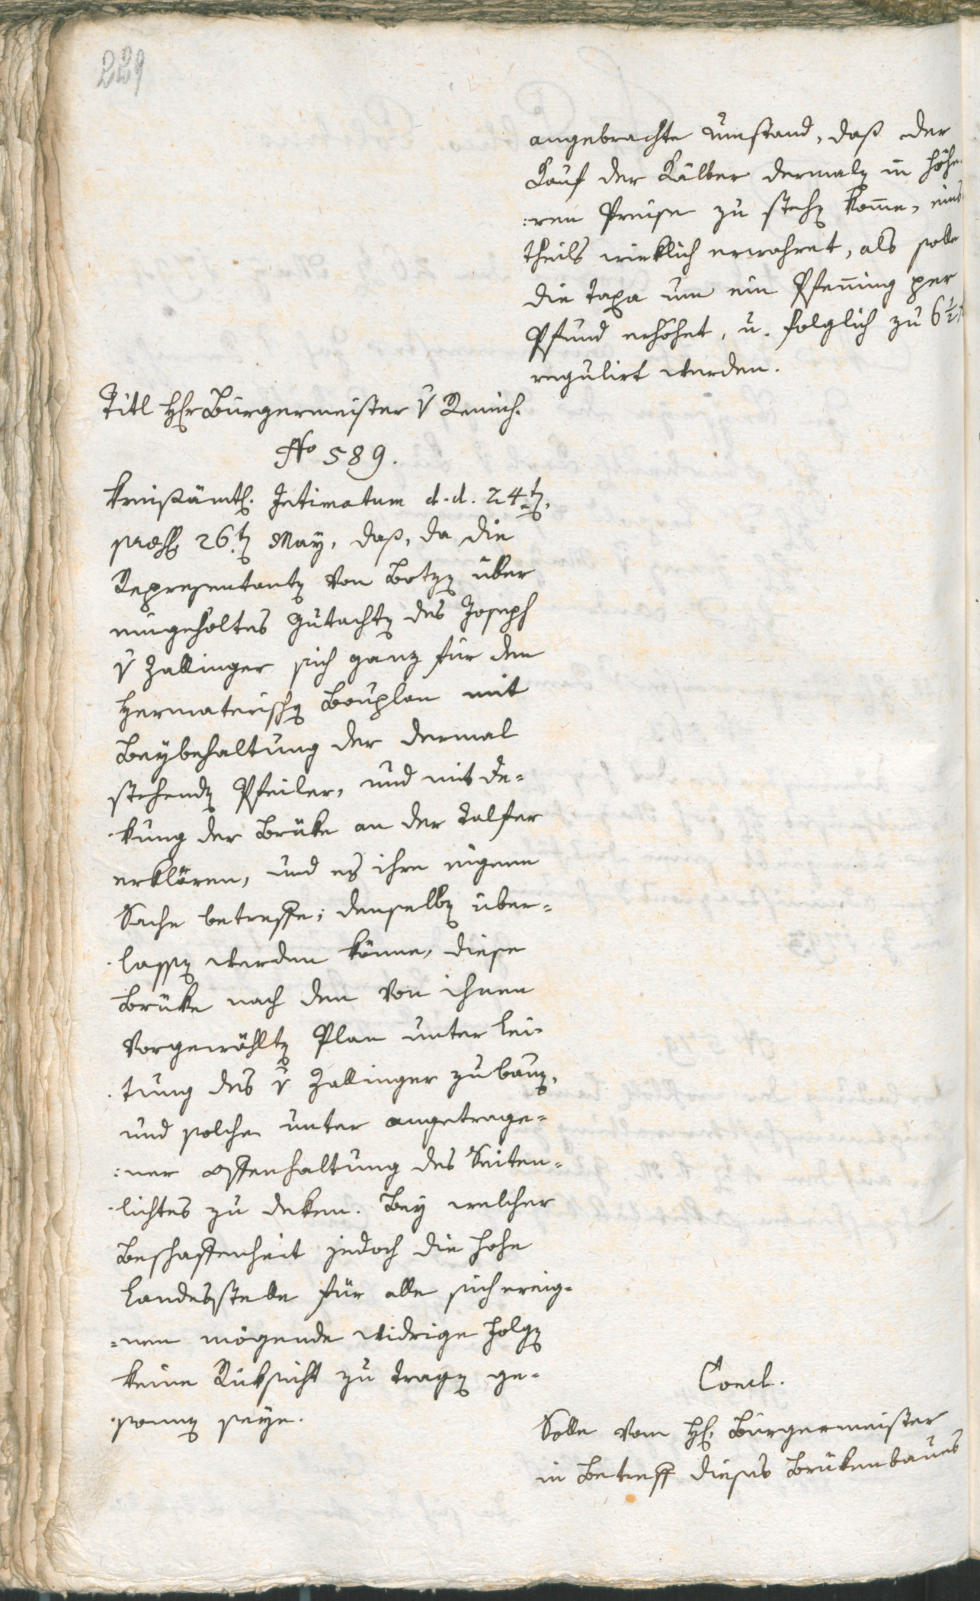 229
angebrachte Umstand, daß der
Kauf der Kälber dermalẽ in höhe-
:ren Preise zu stehẽ kom̄e, eines
theils wirklich erwahret, als solle
die Taxa um ein Pfen̄ing per
Pfund erhöhet, u. folglich zu 6½
regulirt werden.
Titl Hr Bürgermeister v Remich.
No 589.
Kreißämtl. Intimatum d. d. 24tẽ,
præs. 26.tẽ May, daß, da die
Representantẽ von Botzẽ über
eingeholtes Gutachtẽ des Joseph
v Zallinger sich ganz für den
Hermaterischẽ Bauplan mit
Beybehaltung der dermal
stehendẽ Pfeiler, und mit De-
kung der Brüke an der Talfer
erklären, und es ihre eigene
Sache betreffe; denselbẽ über-
lassẽ werden kön̄e, diese
Brüke nach dem von ihnen
vorgewähltẽ Plan unter Lei-
tung des v Zallinger zu bauẽ,
und solche unter angetrage-
:ner Offenhaltung des Seiten-
lichtes zu deken. Bey welcher
Beschaffenheit jedoch die hohe
Landesstelle für alle sich ereig-
-nen mögende widrige Folgẽ
keine Rüksicht zu tragẽ ge-
son̄ẽ seye.
Concl.
Solle vom Hr. Bürgermeister
in Betreff dieses Brükenbaues